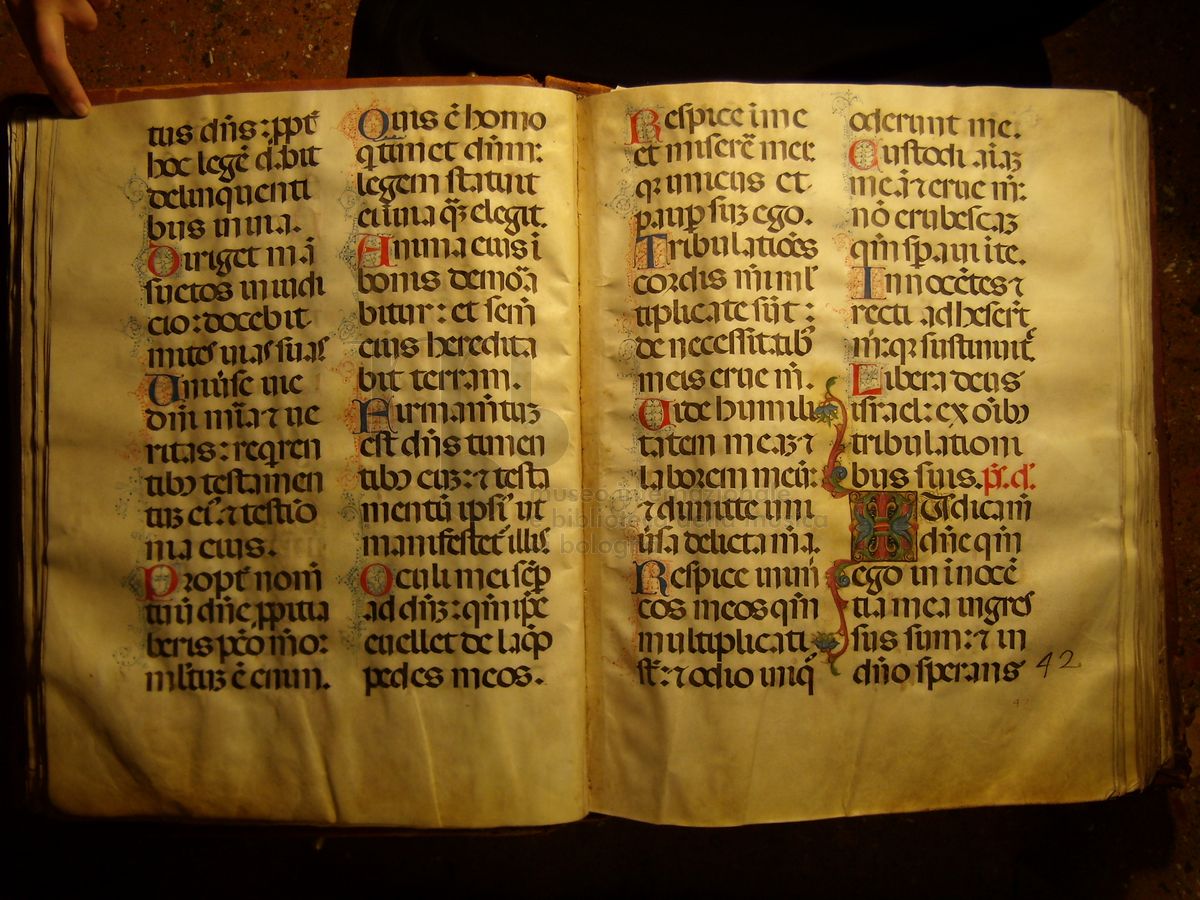 tus dn̄s: ꝓpt̄
hoc legē dabit
delinquenti
bus in uia.
Diriget mā  
suetos in iudi
cio: docebit
mites uias suas
Uniuẜe uie
dn̄i mīa ⁊ ue
ritas: reqͥren
tibꝰ testamen
tuꝫ eiˀ ⁊ testīo
nia eius.
Propt̄ nom̄
tuū dn̄e, ꝓpitia
beris pc̄o m̄o:
mltuꝫ ē enim.
Quis ē homo
qͥ timet dn̄m:
legem statuit
ei in uia qͣꝫ elegit.
Anima eius ī
bonis demorā
bitur: et sem̄
eius heredita
bit terram.
Firmam̄tuꝫ
est dn̄s timen
tibꝰ euꝫ: ⁊ testa
mentū ipsiˀ ut
manifestet̄ illis.
Oculi mei sēp
ad dn̄ꝫ: qm̄ ip̄e
euellet de laqͦ
pedes meos.
Respice ī me
et miserē mei:
qꝛ unicus et
paup̄ suꝫ ego.
Tribulatiōes
cordis m̄i ml̄
tiplicate sūt:
de necessitatibꝰ
meis erue m̄.
Uide humili
tatem meaꝫ ⁊
laborem meū:
⁊ dimitte uni
ūsa delicta m̄a.
Respice inimi
cos meos qm̄
multiplicati
st̄: ⁊ odio iniqͦ
oderunt me.
Custodi aīaꝫ
meā ⁊ erue m̄:
nō erubescaꝫ
qm̄ speraui ī te.
Innocētes ⁊
recti adheser̄t
m̄: qꝛ sustinui t̄.
Libera deus
israel: ex oībꝰ
tribulationi
bus suis. p̄s. d̄.
IUdica m̄
dn̄e qm̄
ego in inocē
tia mea ingres
sus sum: ⁊ in
dn̄o sperans
42
museo internazionale
e biblioteca della musica
bologna